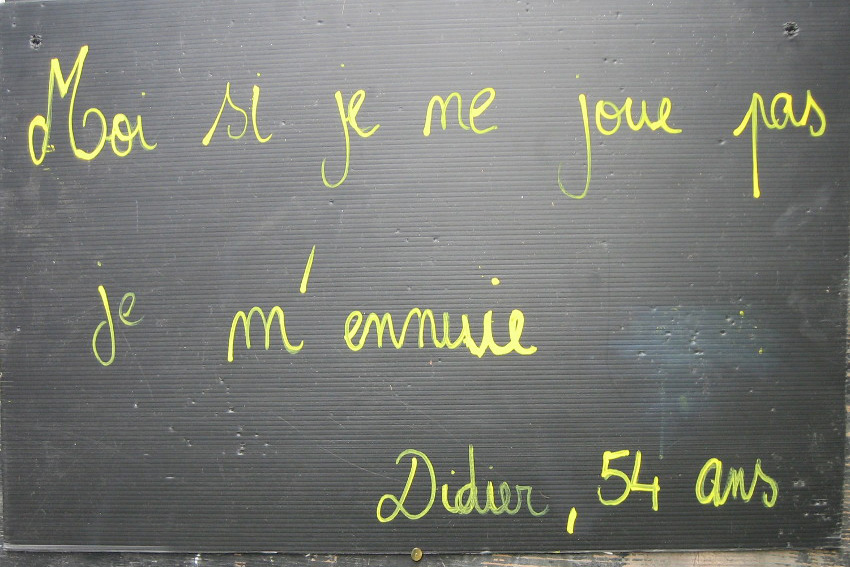 Moi si je ne joue pas
je m'ennuie
Didier, 54 ans